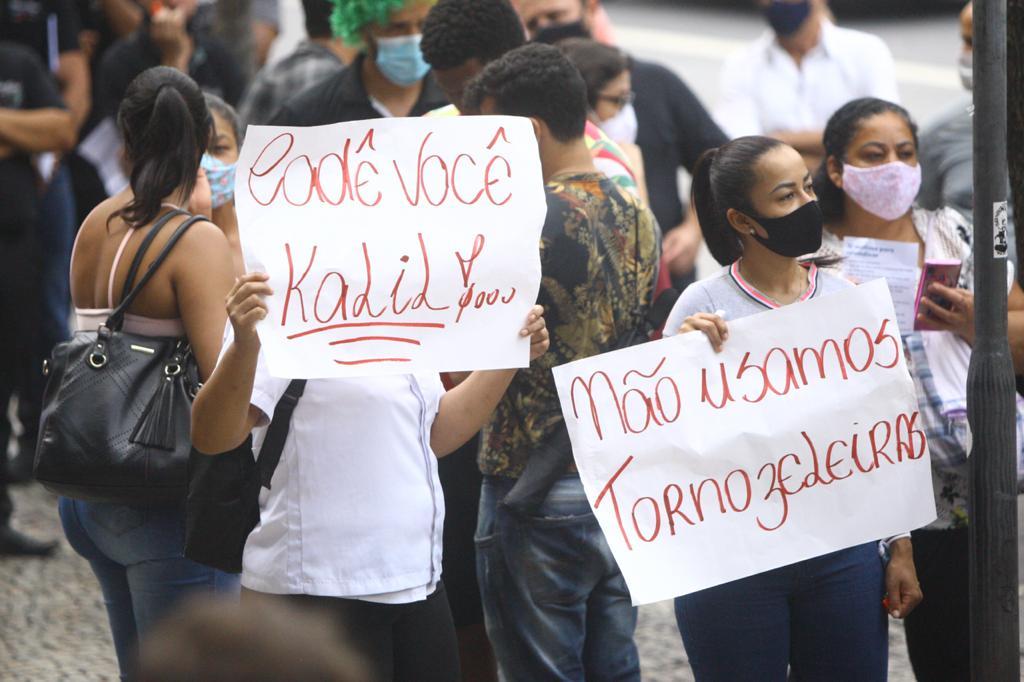 Cadê você
Kalil!
Não usamos
Tornozeleiras